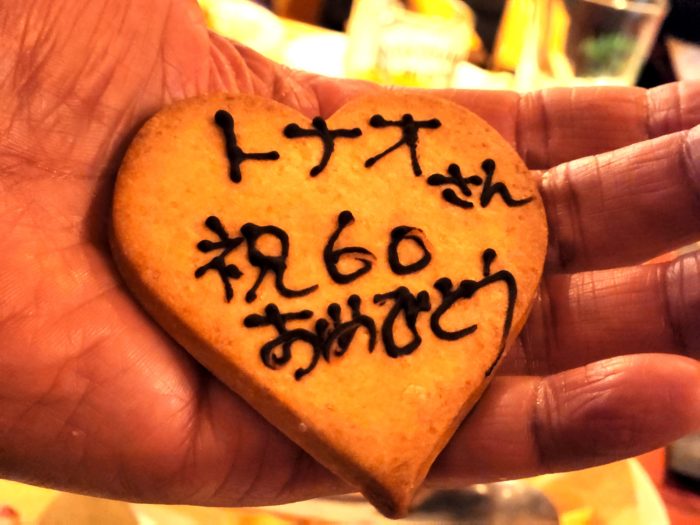 トナオさん
祝60
おめでとう